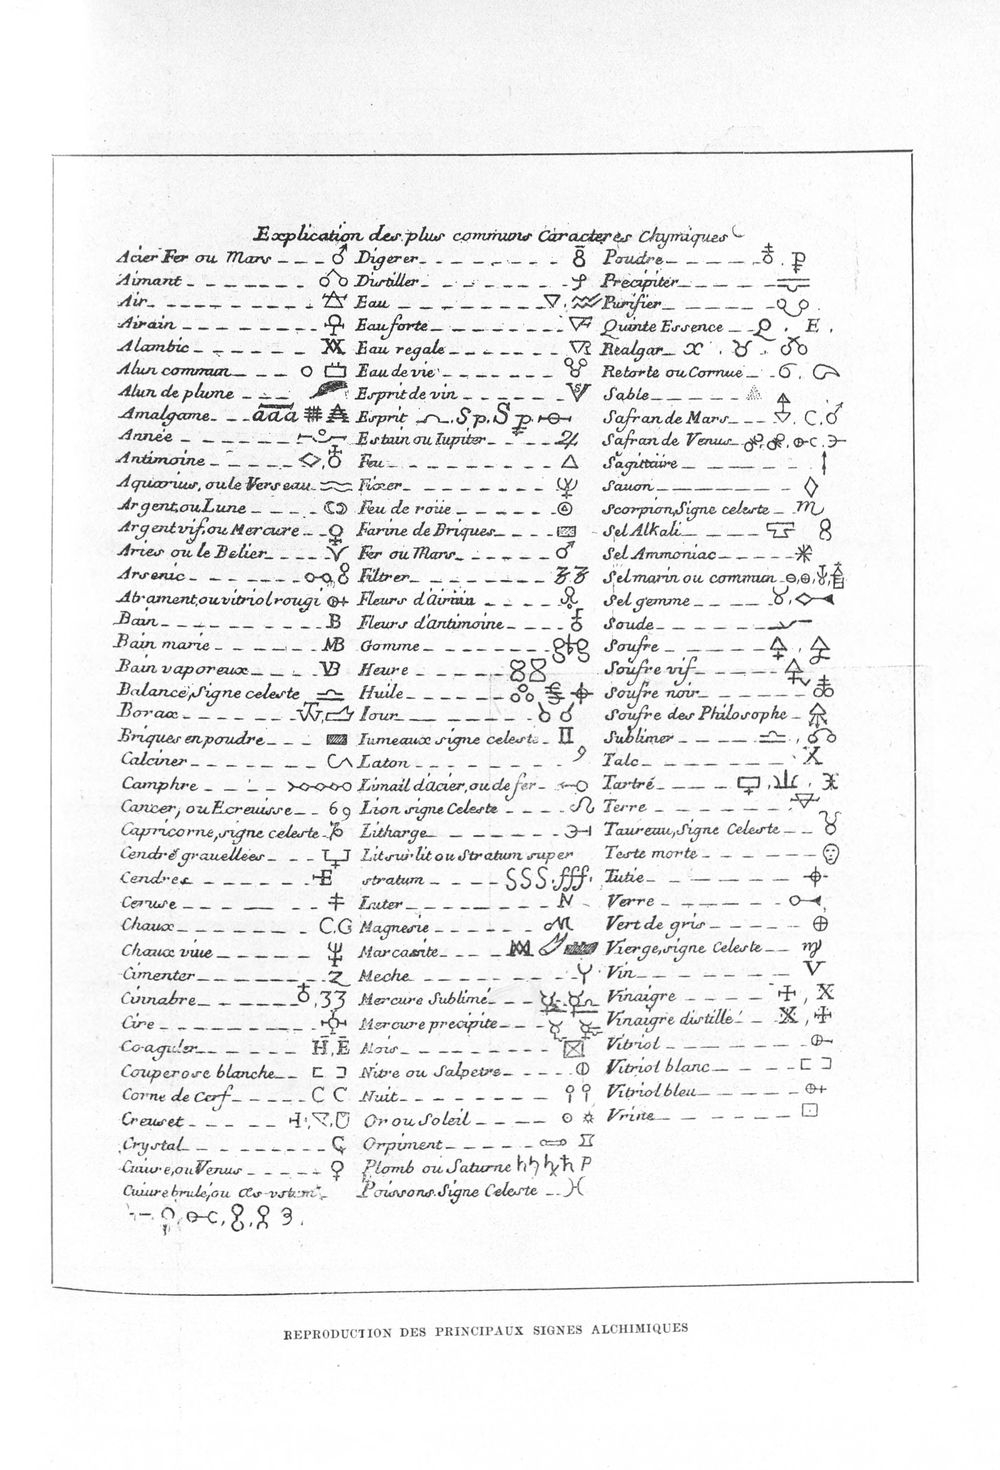 Explication des plus communs Caracteres Chymiques
Acier Fer ou Mars
Aimant
Air
Airain
Alambic
Alun commun
Alun de plume
Amalgame aaa
Année
Antimoine
Aquarius, ou le Verseau
Argent, ou Lune
Argent vif, ou Mercure
Aries ou le Belier
Arsenic
Atrament, ou vitriol rougi
Bain B
Bain marie MB
Bain vaporeux VB
Balance, Signe celeste
Borax
Briques en poudre
Calciner
Camphre
Cancer, ou Ecreuisse 69
Capricorne, signe celeste
Cendre grauellées
Cendres E
Ceruse
Chaux C.G
Chaux viue
Cimenter Z
Cinnabre 33
Cire
Coaguler H, E
Couperose blanche
Corne de Cerf C C
Creuset
Crystal
Cuiure, ou Venus
Cuiure brulé, ou æs-vstum
Digerer
Distiller
Eau
Eau forte
Eau regale
Eau de vie
Esprit de vin
Esprit Sp. Sp
Estain ou Iupiter
Feu
Fixer
Feu de roüe
Farine de Briques
Fer ou Mars
Filtrer
Fleurs d'airain
Fleurs d'antimoine
Gomme
Heure
Huile
Iour
Iumeaux signe celeste II
Laton
Limail d'acier, ou de fer
Lion signe Celeste
Litharge
Lit sur lit ou Stratum super
stratum SSS. fff.
Luter
Magnesie
Marcasite
Meche
Mercure Sublimé
Mercure precipite
Mois
Nitre ou Salpetre
Nuit
Or ou Soleil
Orpiment
Plomb ou Saturne P
Poissons Signe Celeste
Poudre
Precipiter
Purifier
Quinte Essence Q. E.
Realgar
Retorte ou Cornue
Sable
Safran de Mars
Safran de Venus
Sagittaire
Sauon
Scorpion, Signe celeste
Sel Alkali
Sel Ammoniac
Sel marin ou commun
Sel gemme
Soude
Soufre
Soufre vif
Soufre noir
Soufre des Philosophe
Sublimer
Talc X
Tartré
Terre
Taureau, Signe Celeste
Teste morte
Tutie
Verre
Vert de gris
Vierge, signe Celeste
Vin V
Vinaigre X
Vinaigre distillé
Vitriol
Vitriol blanc
Vitriol bleu
Vrine
REPRODUCTION DES PRINCIPAUX SIGNES ALCHIMIQUES